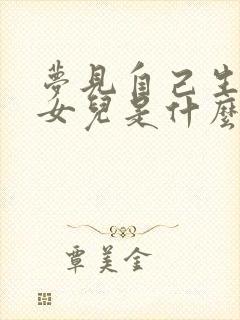 夢見自己生
女兒是什麼
覃美金